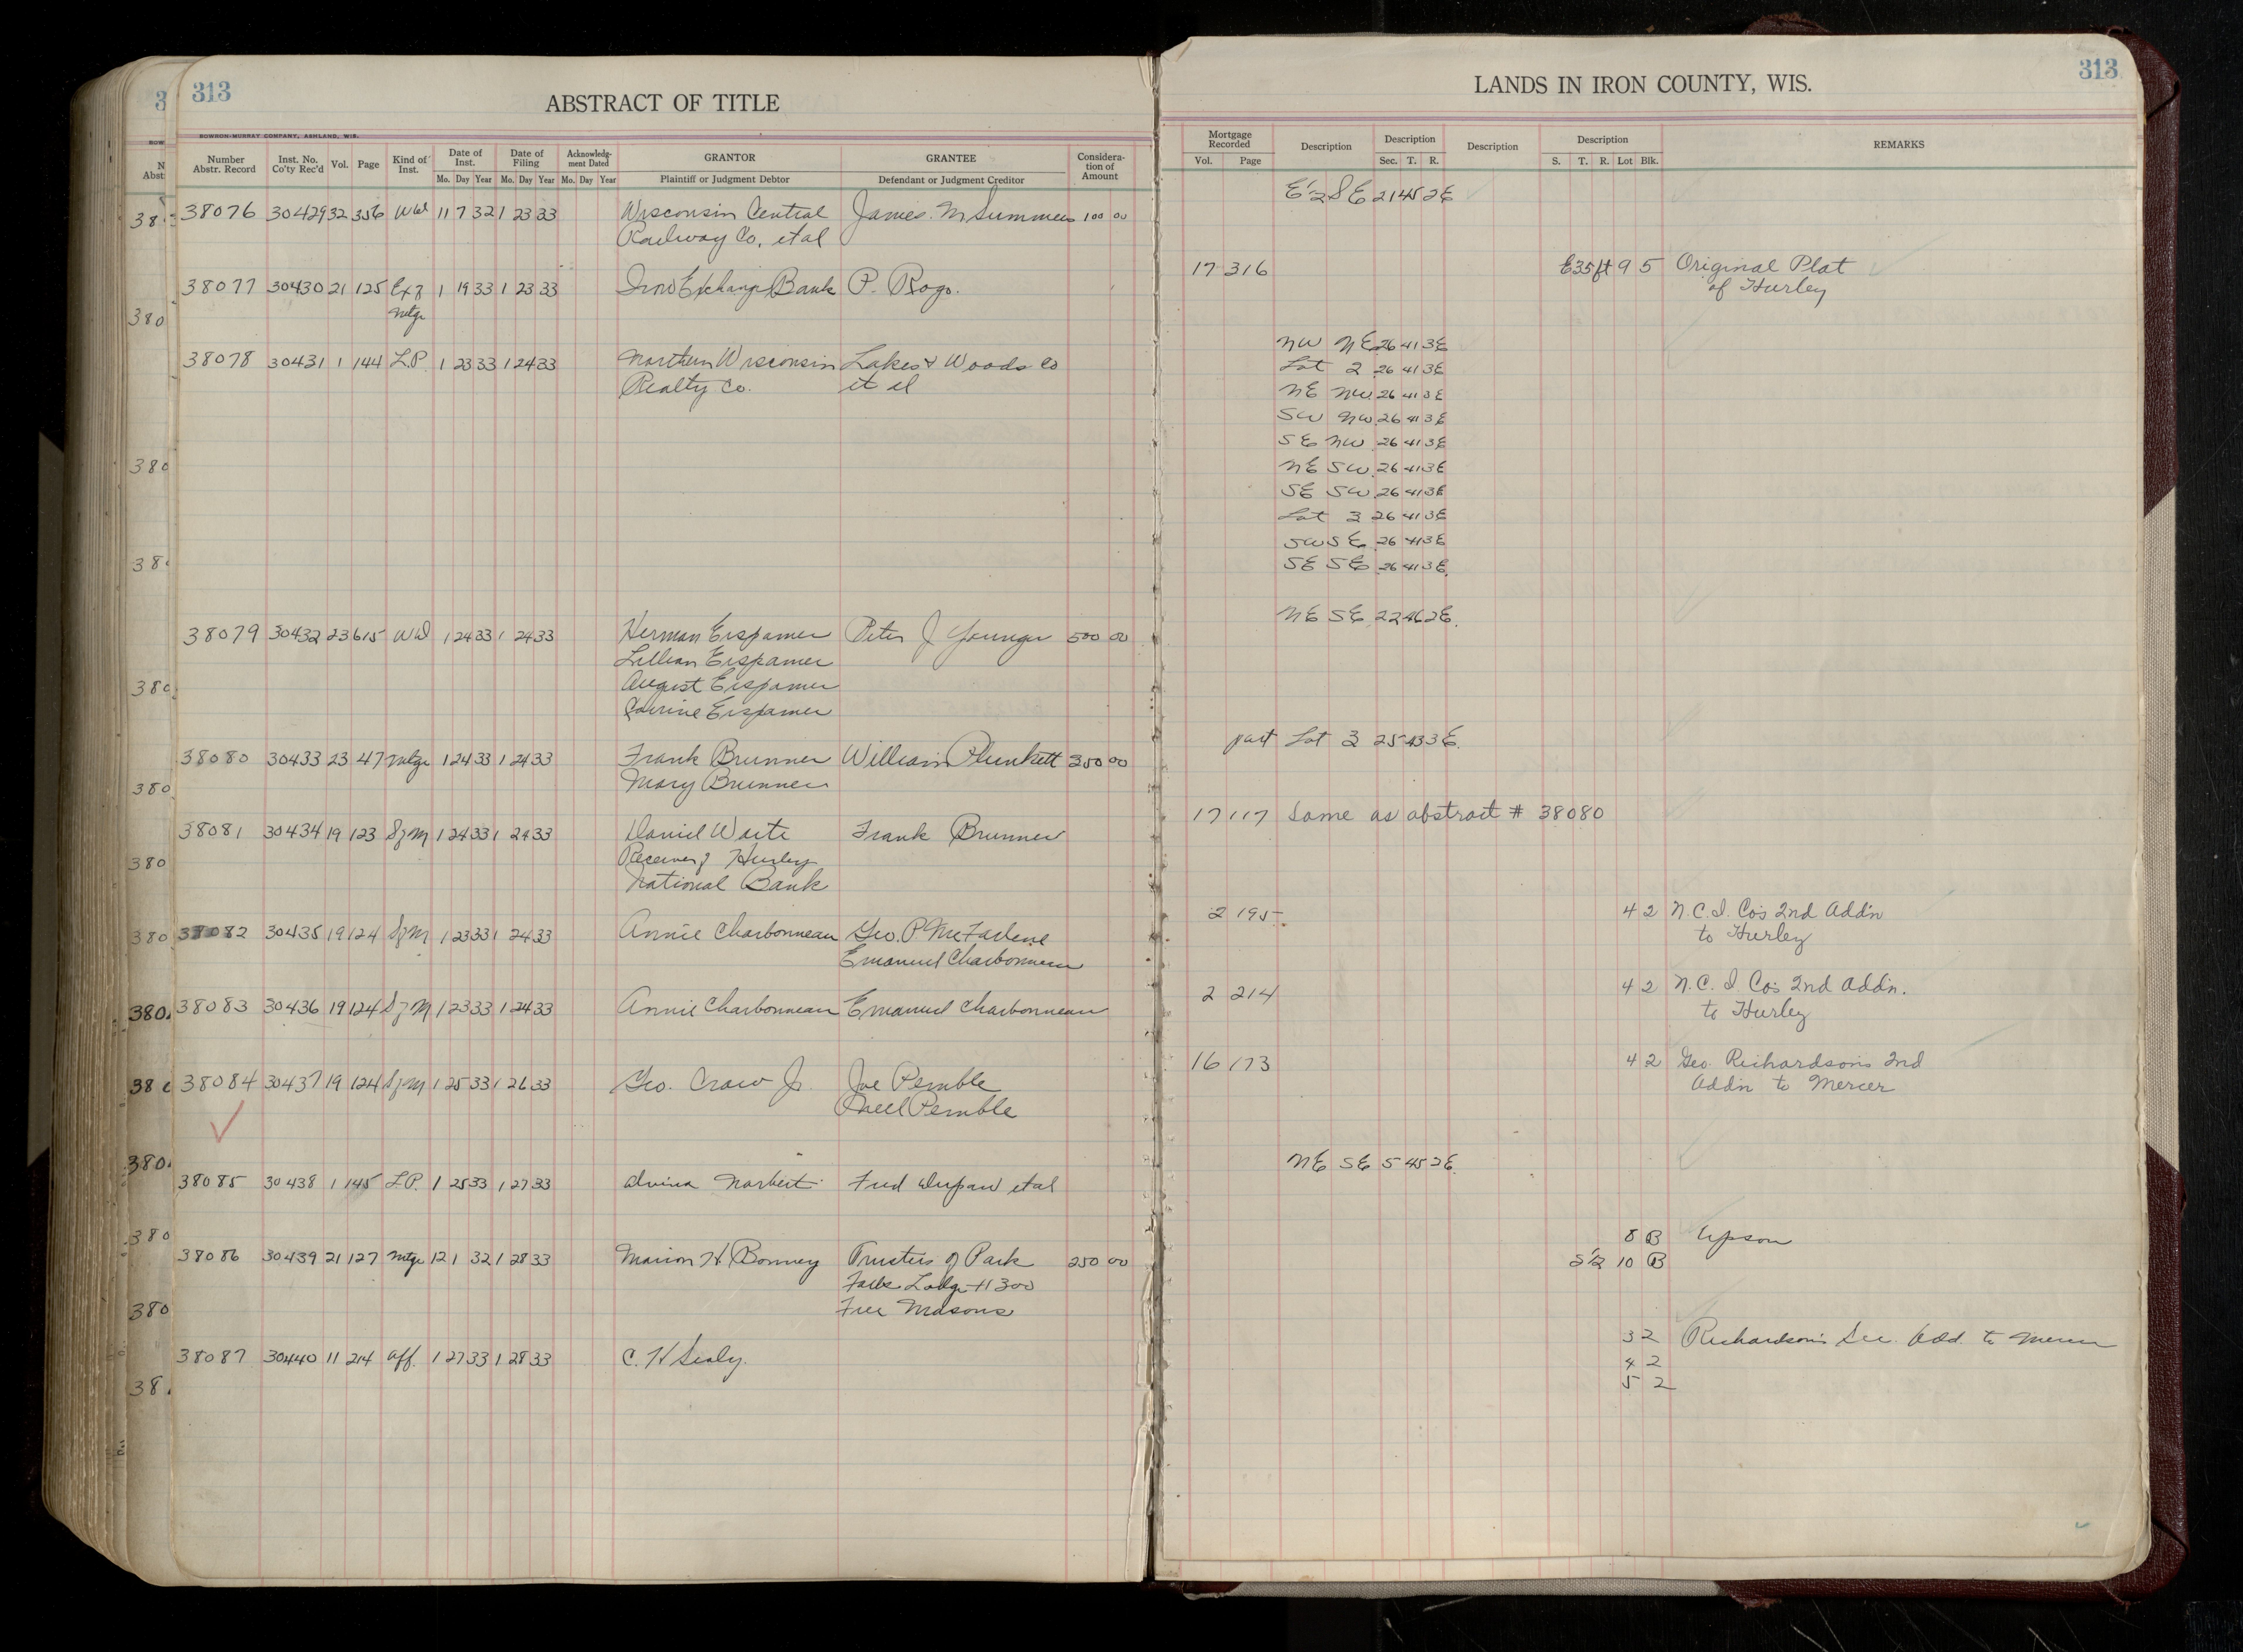 313
ABSTRACT OF TITLE
BOWRON-MURRAY COMPANY, ASHLAND, WIS.
Number Abstr. Record | Inst. No. Co'ty Rec'd | Vol. | Page | Kind of Inst. | Date of Inst. Mo. Day Year | Date of Filing Mo. Day Year | Acknowledgment Dated Mo. Day Year | GRANTOR Plaintiff or Judgment Debtor | GRANTEE Defendant or Judgment Creditor | Consideration of Amount
38076 30429 32 356 WD 11 7 32 1 23 33 Wisconsin Central James M Summers 100 00
Railway Co. et al
38077 30430 21 125 Ext 1 19 33 1 23 33 Iron Exchange Bank P. Rogo.
Mtge
38078 30431 1 144 L.P. 1 23 33 1 24 33 Northern Wisconsin Lakes & Woods Co
Realty Co. et al
38079 30432 23 615 WD 1 24 33 1 24 33 Herman Erspamer Peter J Younger 500 00
Lillian Erspamer
August Erspamer
Erspamer
38080 30433 23 47 Mtge 1 24 33 1 24 33 Frank Brunner William Plunkett 350 00
Mary Brunner
38081 30434 19 123 Sf M 1 24 33 1 24 33 Daniel Waite Frank Brunner
Receiver of Hurley
National Bank
38082 30435 19 124 Sf M 1 23 33 1 24 33 Annie Charbonneau Geo. P McFarlene
Emanuel Charbonneau
38083 30436 19 124 Sf M 1 23 33 1 24 33 Annie Charbonneau Emanuel Charbonneau
38084 30437 19 124 Sf M 1 25 33 1 26 33 Geo. Craw Jr. Joe Pemble
Pemble
38085 30438 1 145 L.P. 1 25 33 1 27 33 Alvina Norbert Fred et al
38086 30439 21 127 Mtge 12 1 32 1 28 33 Marion H. Bonney Trustees of Park 250 00
Falls Lodge #300
Free Masons
38087 30440 11 214 Aff. 1 27 33 1 28 33 C. H Sealy.
313
LANDS IN IRON COUNTY, WIS.
Mortgage Recorded Vol. Page | Description | Description Sec. T. R. | Description | Description S. T. R. Lot Blk. | REMARKS
E½ SE 21 45 2E
17 316 E35ft 9 5 Original Plat
of Hurley
NW NE 26 41 3E
Lot 2 26 41 3E
NE NW 26 41 3E
SW NW 26 41 3E
SE NW 26 41 3E
NE SW 26 41 3E
SE SW 26 41 3E
Lot 3 26 41 3E
SW SE 26 41 3E
SE SE 26 41 3E
NE SE 22 46 2E.
part Lot 3 25 43 3E.
17 117 Same as abstract # 38080
2 195 4 2 N.C.I. Co's 2nd Add'n
to Hurley
2 214 4 2 N.C.I. Co's 2nd Add'n.
to Hurley
16 173 4 2 Geo. Richardson's 2nd
Add'n to Mercer
NE SE 5 45 2E.
8 B Upson
S½ 10 B
3 2 Richardson's Sec. Add. to Mercer
4 2
5 2